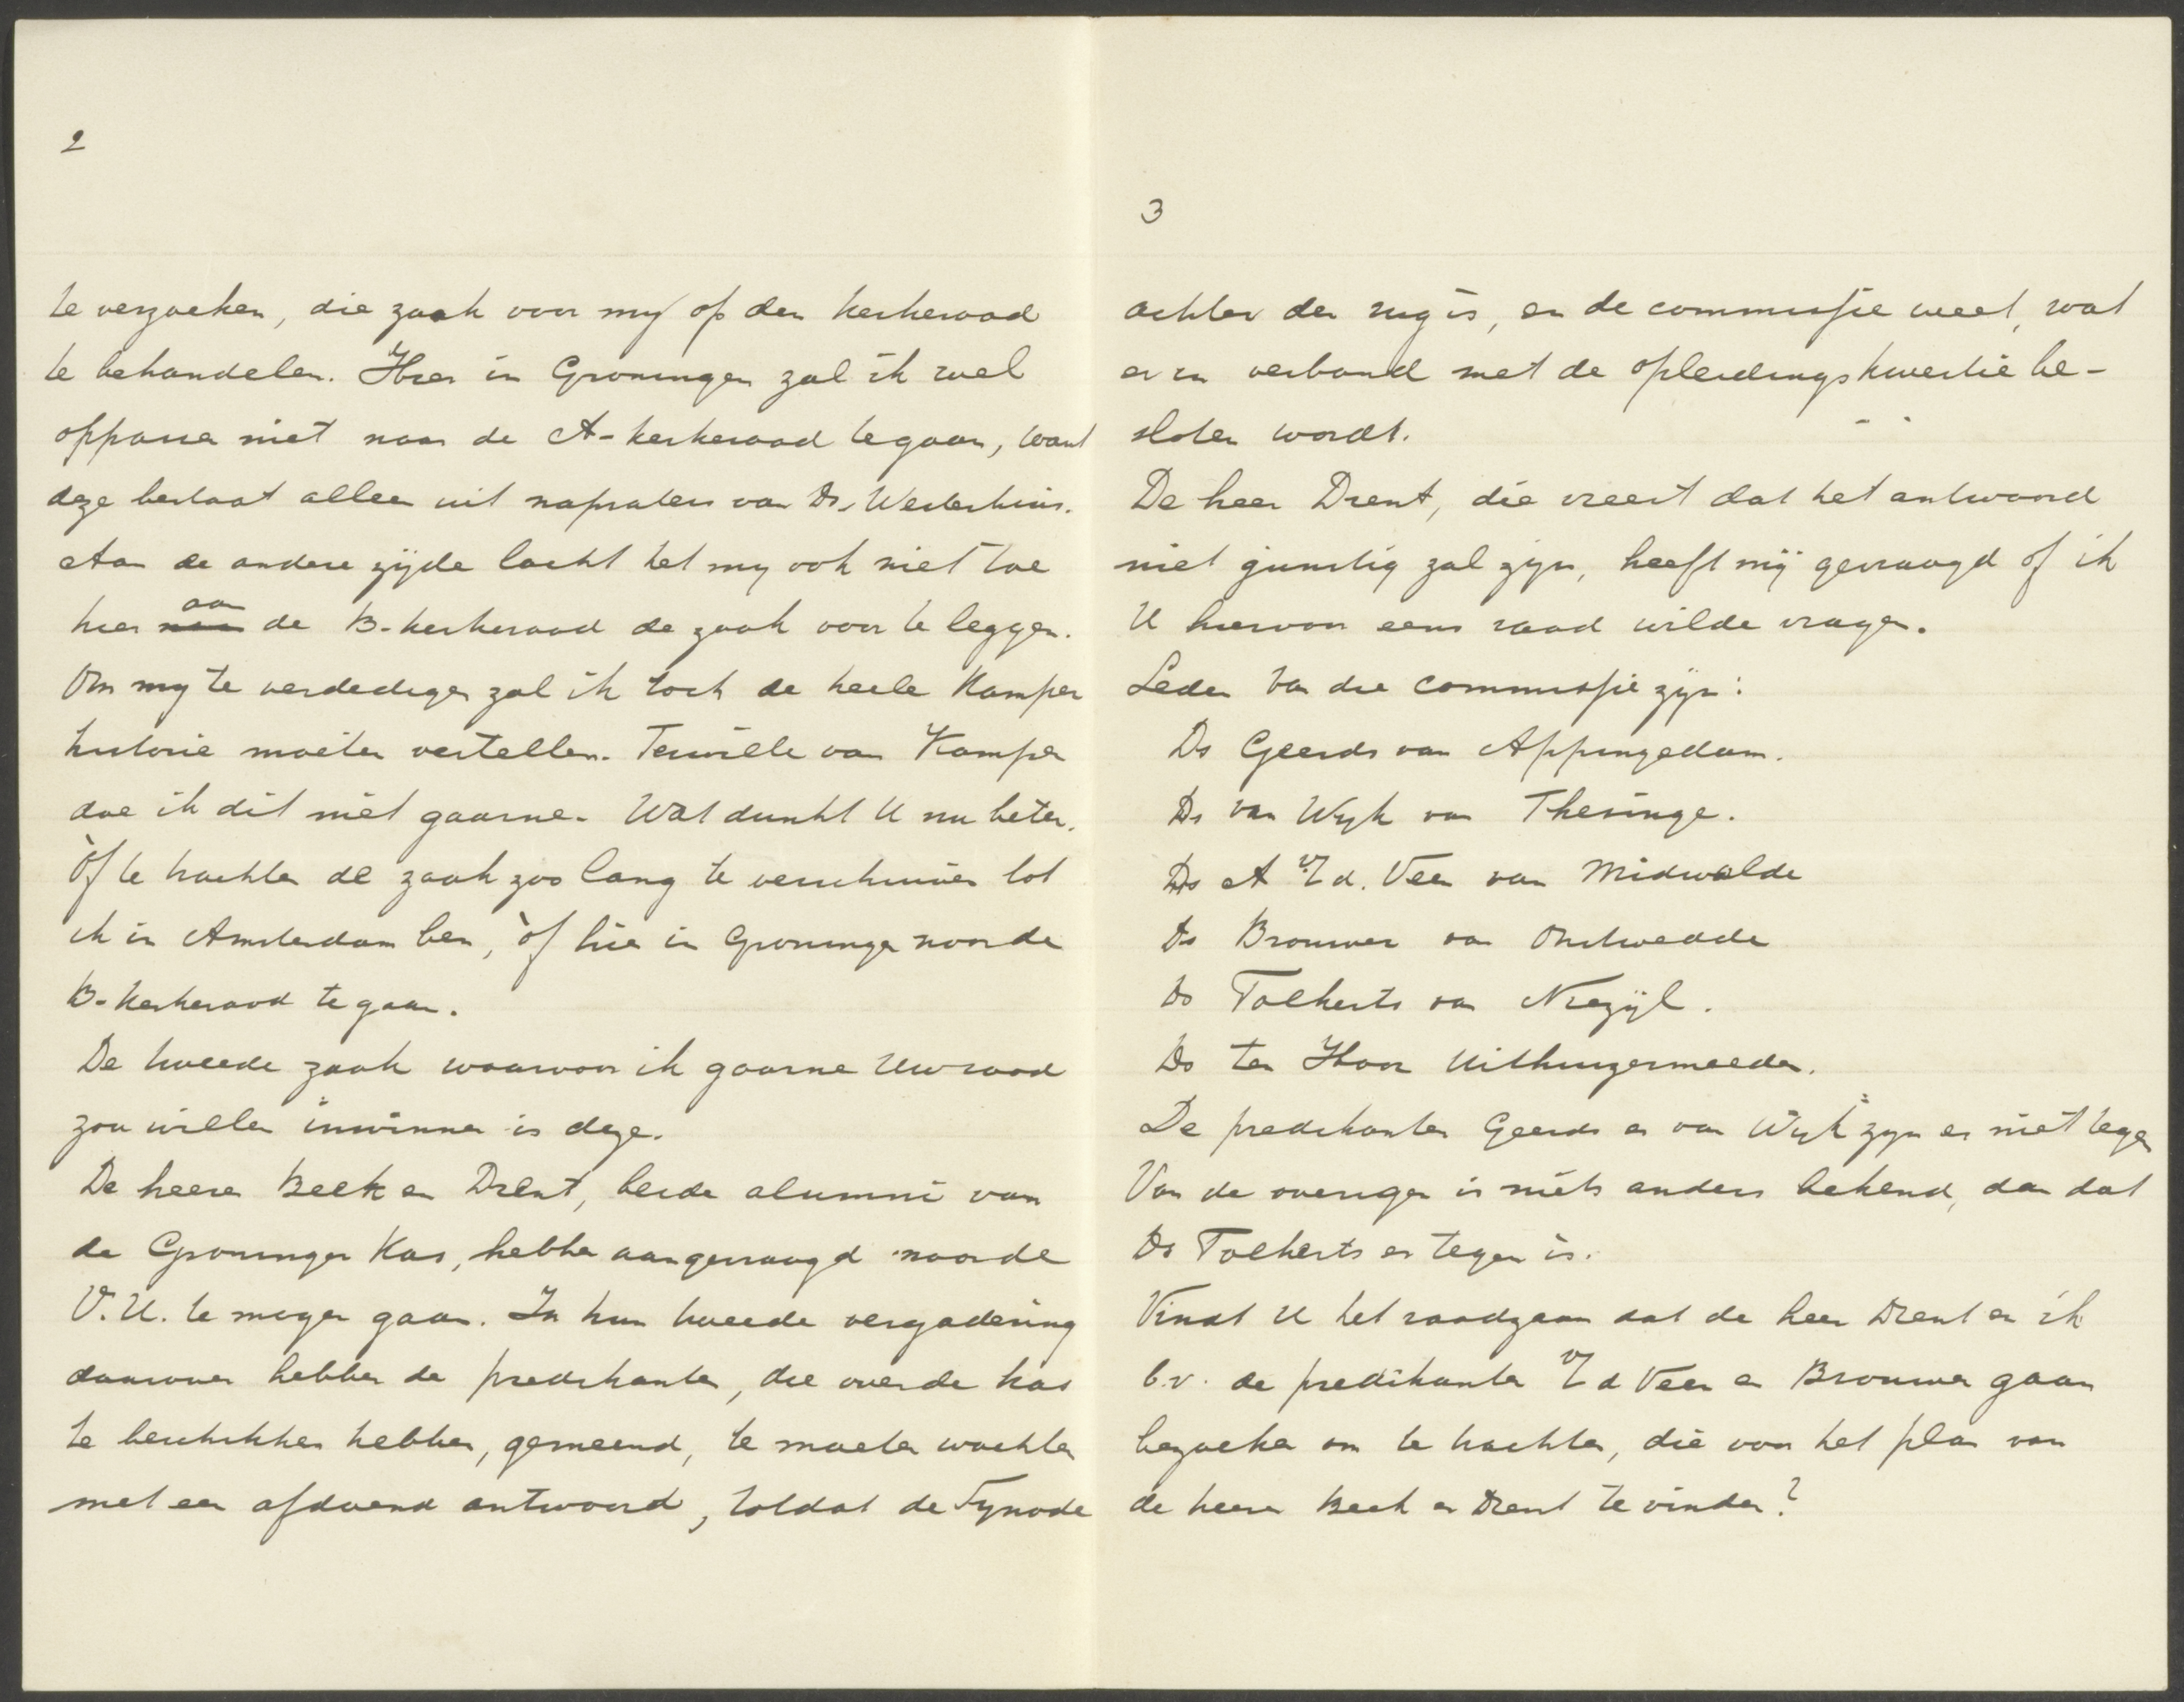 2
te verzoeken, die zaak voor mij op den kerkeraad
te behandelen. Hier in Groningen zal ik wel
oppassen niet naar de A-kerkeraad te gaan, want
deze bestaat alleen uit napraters van Ds. Westerhuis.
Aan de andere zijde lacht het mij ook niet toe
hier aan de B-kerkeraad de zaak voor te leggen.
Om mij te verdedigen zal ik toch de heele Kamper
historie moeten vertellen. Terwille van Kampen
doe ik dit niet gaarne. Wat dunkt U nu beter.
Òf te trachten de zaak zoo lang te verschuiven tot
ik in Amsterdam ben, òf hier in Groningen naar de
B-kerkeraad te gaan.
De tweede zaak waarvoor ik gaarne Uw raad
zou willen inwinnen is deze.
De heeren Beek en Drent, beide alumni van
de Groninger Kas, hebben aangevraagd naar de
V.U. te mogen gaan. In hun tweede vergadering
daarover hebben de predikanten, die over de kas
te beschikken hebben, gemeend, te moeten wachten
met een afdoend antwoord, totdat de Synode
3
achter den rug is, en de commissie weet, wat
er in verband met de opleidingskwestie be-
sloten wordt.
De heer Drent, die vreest dat het antwoord
niet gunstig zal zijn, heeft mij gevraagd of ik
U hiervoor eens raad wilde vragen.
Leden van die commissie zijn:
Ds Geerds van Appingedam.
Ds van Wijk van Thesinge.
Ds A v/d. Veen van Midwolde
Ds Brouwer van Onstwedde
Ds Tolkerts van Niezijl.
Ds ten Hoor Uithuizermeeden.
De predikanten Geerds en van Wijk zijn er niet tegen
Van de overigen is niets anders bekend, dan dat
Ds Tolkerts er tegen is.
Vindt U het raadzaam dat de heer Drent en ik
b.v. de predikanten v/d Veen en Brouwer gaan
bezoeken om te trachten, die voor het plan van
de heeren Beek en Drent te vinden?